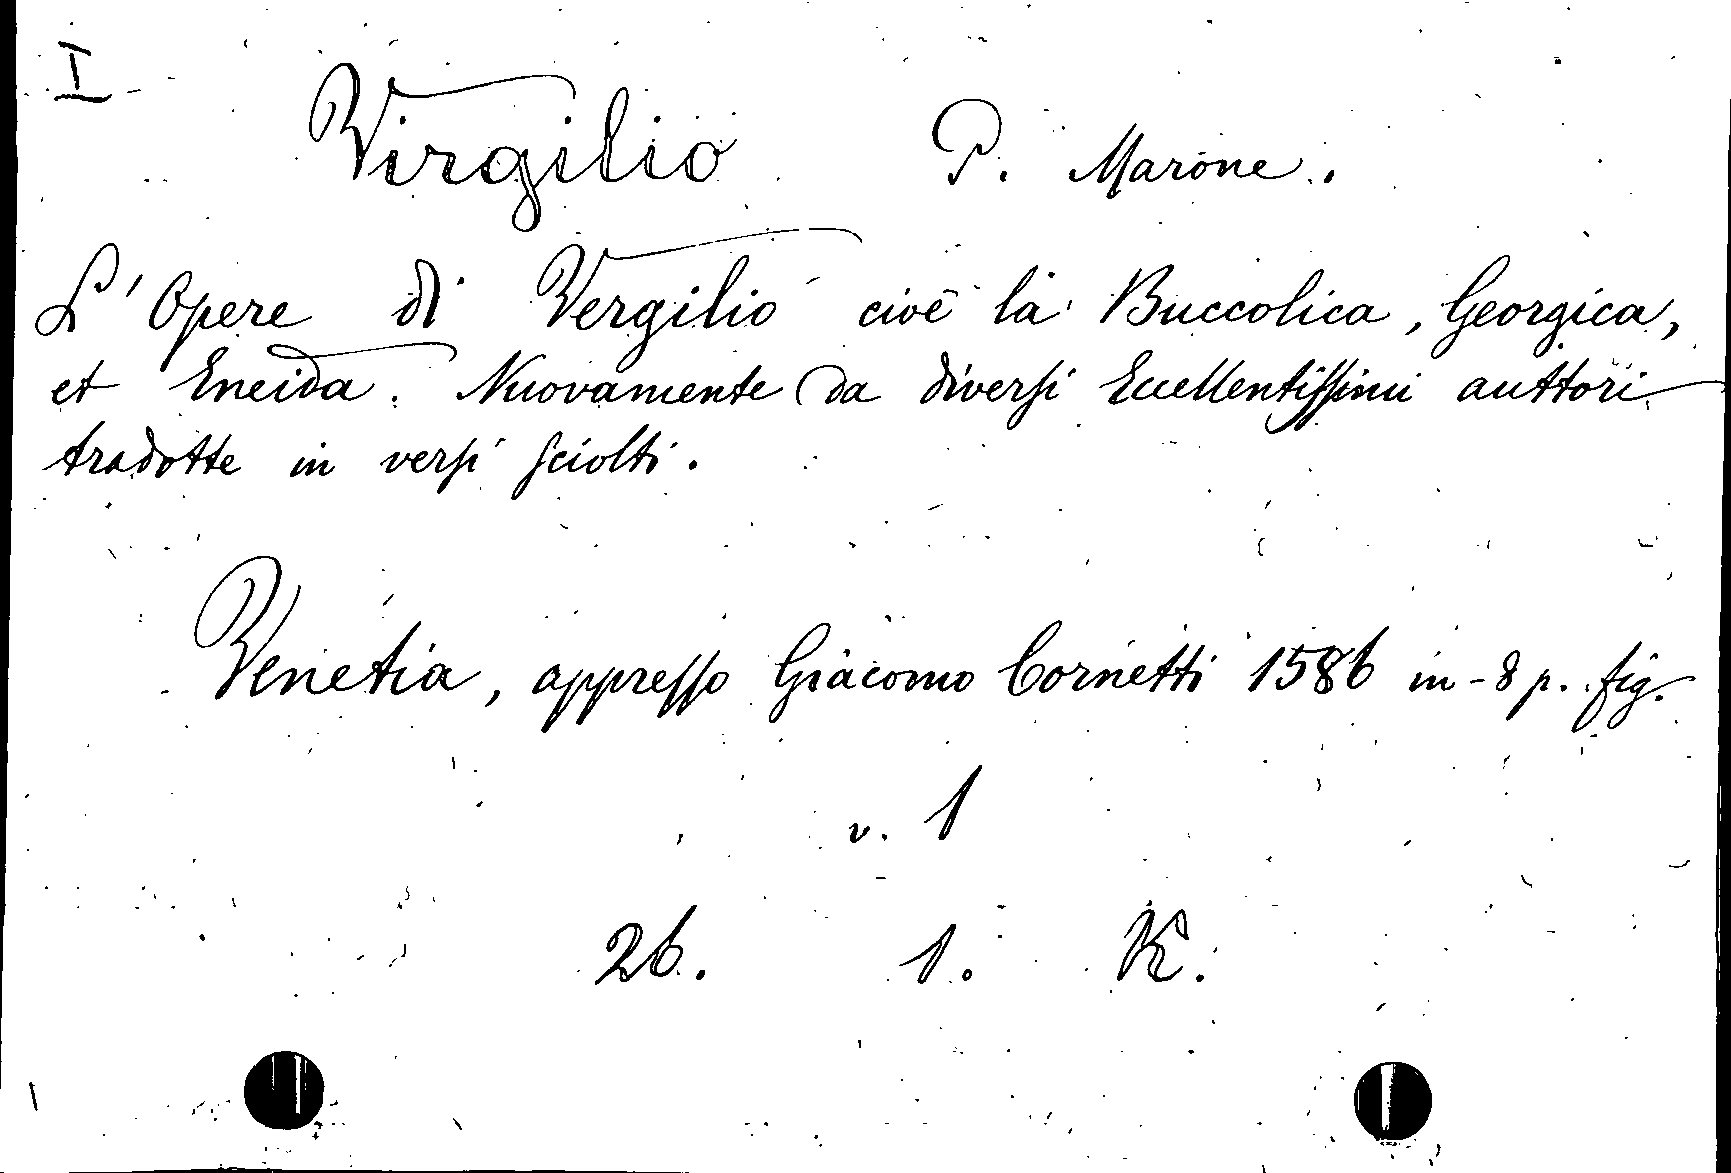 I
Virgilio P. Marone.
L'Opere di Vergilio cioè la Buccolica, Georgica,
et Eneida. Nuovamente da diversi Eccellentissimi auttori
tradotte in versi sciolti.
Venetia, appresso Giacomo Cornetti 1586 in-8 p. fig.
v. 1
26. 1. K.